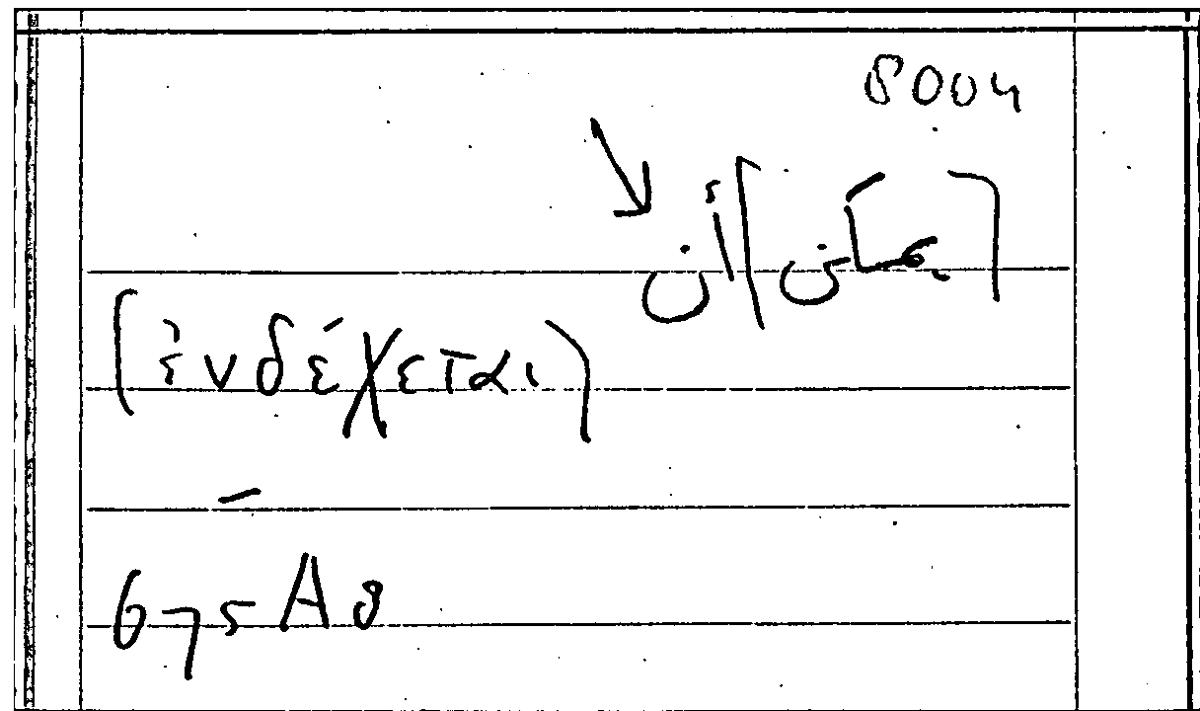 8004
[يمكن] أن
(ἐνδέχεται)
–
675A8